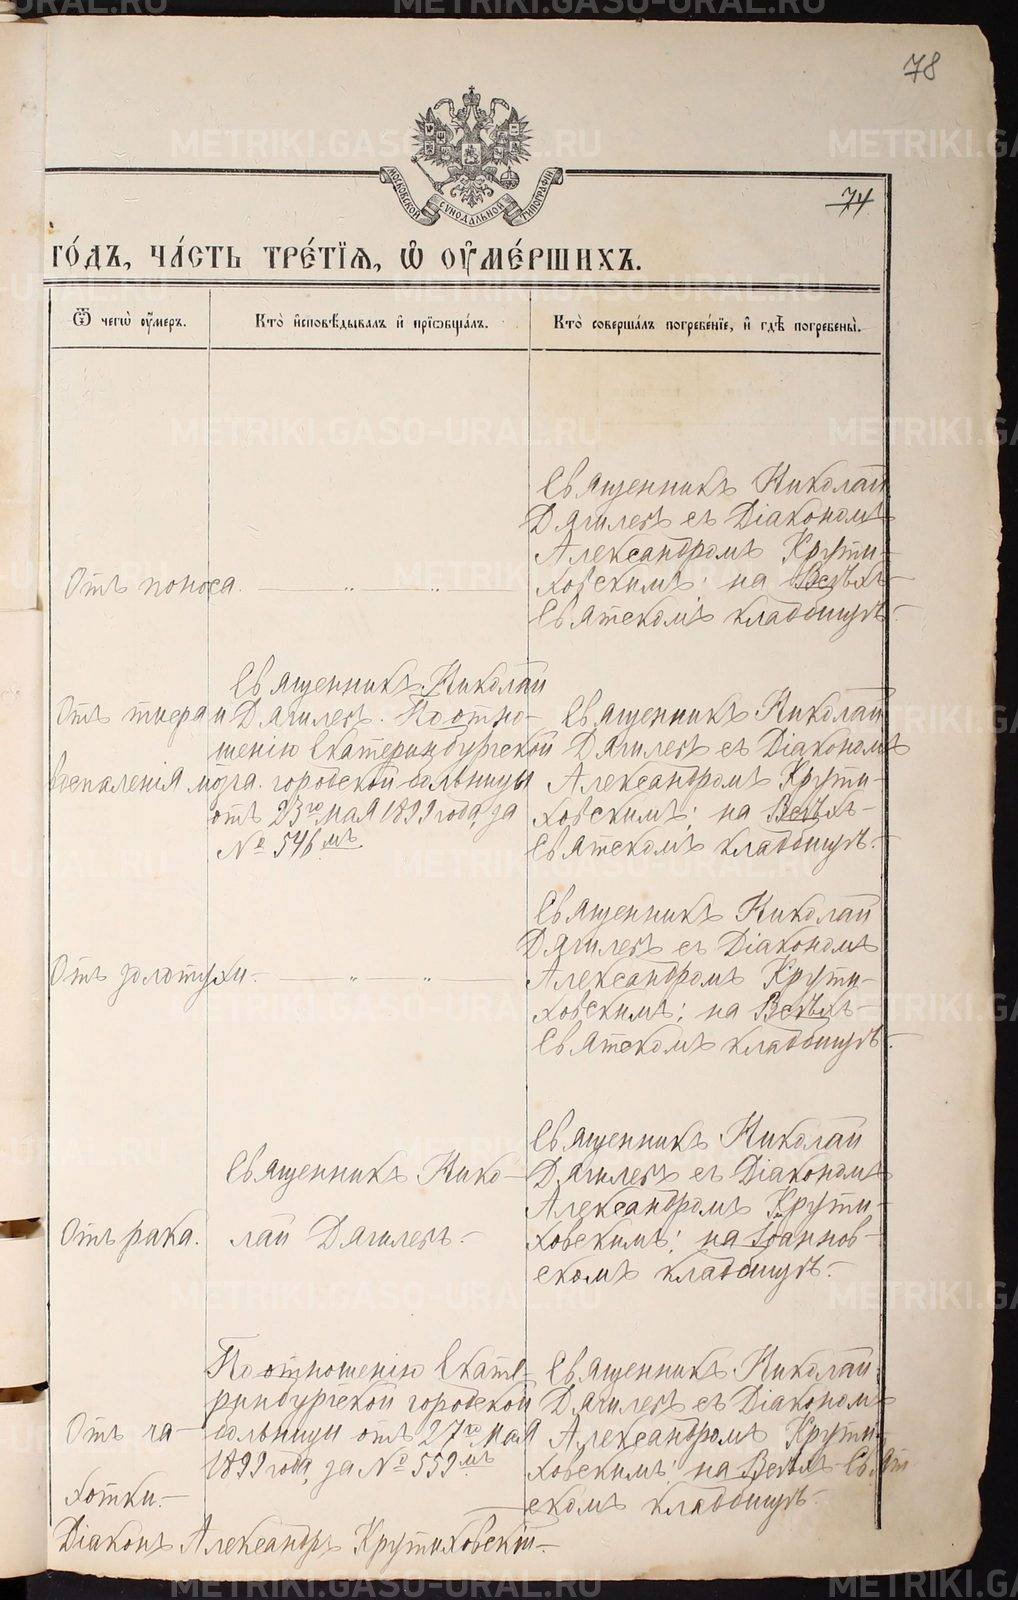 78
МОСКОВСКОЙ СѴНОДАЛЬНОЙ ТИПОГРАФІИ
74
ГО́ДЪ, ЧА́СТЬ ТРЕ́ТІѦ, Ѡ҆ ОУ҆МЕ́РШИХЪ.
Ѿ чегѡ̀ оу҆́меръ.
Кто̀ и҆сповѣ́дывалъ и҆ прїѡбща́лъ.
Кто̀ соверша́лъ погребе́нїе, и҆ гдѣ̀ погребены̀.
Отъ поноса.
Священникъ Николай
Дягилевъ съ Діакономъ
Александромъ Крути-
ховскимъ; на Всѣхъ-
Святскомъ кладбищѣ.-
Отъ тифа и
воспаленія мозга.
Священникъ Николай
Дягилевъ. По отно-
шенію Екатеринбургской
городской больницы
отъ 23го мая 1899 года, за
№ 546мъ.
Священникъ Николай
Дягилевъ съ Діакономъ
Александромъ Крути-
ховскимъ; на Всѣхъ-
Святскомъ кладбищѣ.-
Отъ золотухи.-
Священникъ Николай
Дягилевъ съ Діакономъ
Александромъ Крути-
ховскимъ; на Всѣхъ-
Святскомъ кладбищѣ.-
Отъ рака.
Священникъ Нико-
лай Дягилевъ.-
Священникъ Николай
Дягилевъ съ Діакономъ
Александромъ Крути-
ховскимъ; на Іоаннов-
скомъ кладбищѣ.-
Отъ ча-
хотки.-
По отношенію Екате-
ринбургской городской
больницы отъ 27го мая
1899 года, за № 559мъ
Священникъ Николай
Дягилевъ съ Діакономъ
Александромъ Крути-
ховскимъ; на Всѣхъ-Свят
скомъ кладбищѣ.-
Діаконъ Александръ Крутиховскій.-
METRIKI.GASO-URAL.RU